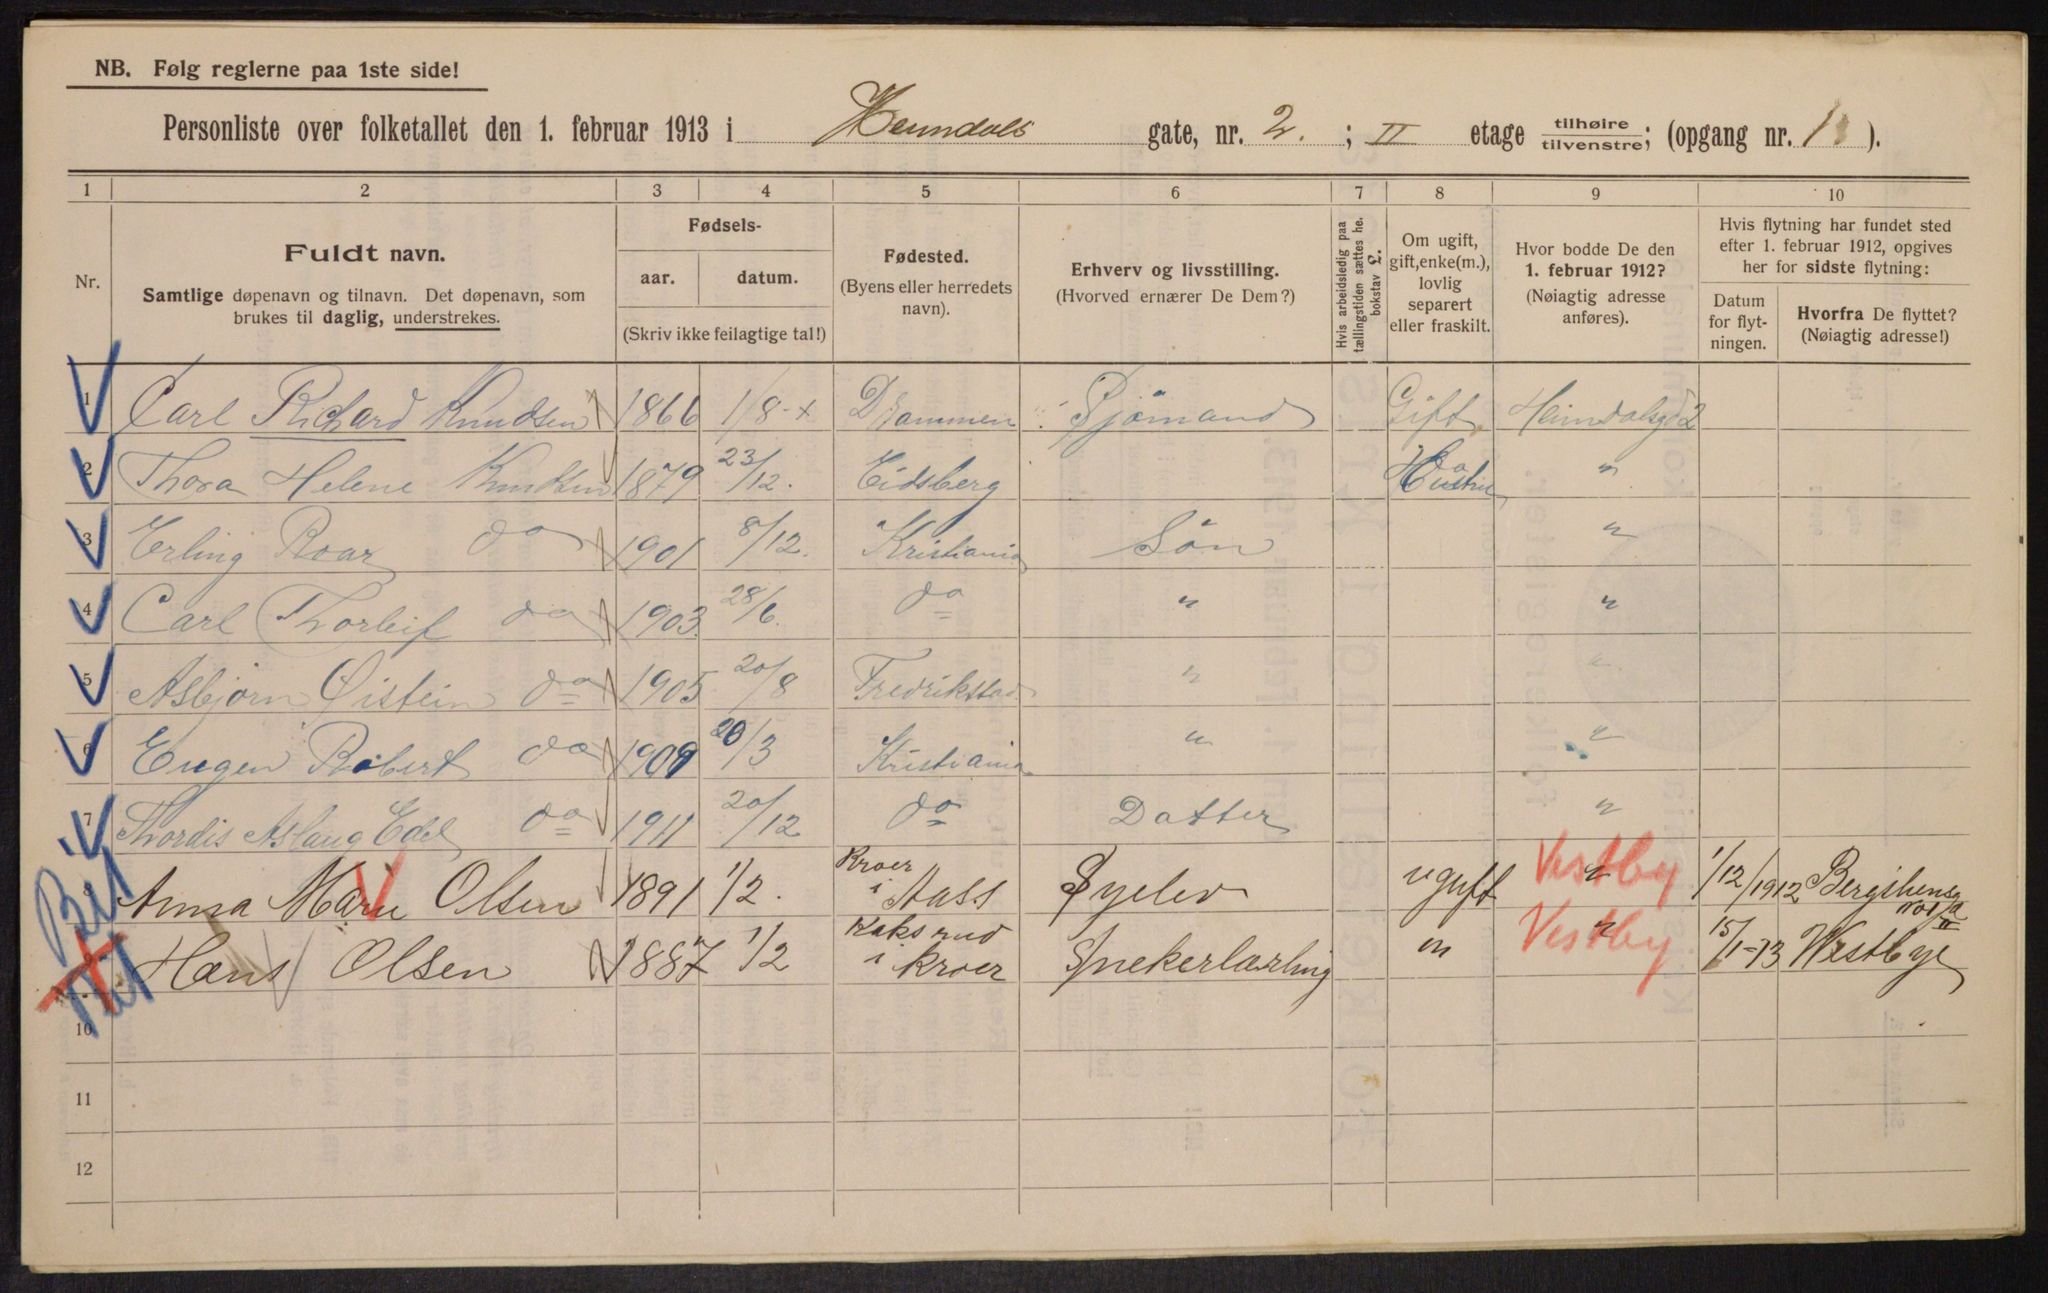 NB. Følg reglerne paa 1ste side!
Personliste over folketallet den 1. februar 1913 i Heimdals gate, nr. 2. ; II etage tilhøire/tilvenstre; (opgang nr. 1 ).
1 2 3 4 5 6 7 8 9 10
Nr.
Fuldt navn.
Samtlige døpenavn og tilnavn. Det døpenavn, som
brukes til daglig, understrekes.
Fødsels-
aar. datum.
(Skriv ikke feilagtige tal!)
Fødested.
(Byens eller herredets
navn).
Erhverv og livsstilling.
(Hvorved ernærer De Dem?)
Hvis arbeidsledig paa
tællingstiden sættes he.
bokstav L.
Om ugift,
gift, enke(m.),
lovlig
separert
eller fraskilt.
Hvor bodde De den
1. februar 1912?
(Nøiagtig adresse
anføres).
Hvis flytning har fundet sted
efter 1. februar 1912, opgives
her for sidste flytning:
Datum
for flyt-
ningen.
Hvorfra De flyttet?
(Nøiagtig adresse!)
1 Carl Richard Knudsen 1866 1/8 Drammen Sjömand Gift Heimdalsgd 2
2 Thora Helene Knudsen 1879 23/12. Eidsberg Hustru "
3 Erling Roar do 1901 8/12. Kristiania Sön "
4 Carl Thorleif do 1903. 28/6. do " "
5 Asbjørn Øistein do 1905 20/8 Fredrikstad " "
6 Eugen Robert do 1909 20/3 Kristiania " "
7 Thordis Aslaug Edel do 1911 20/12 do Datter "
8 Anna Marie Olsen 1891 1/2. Kroer i Aass Syelev ugift Vestby " 1/12/1912
9 Hans Olsen 1887 1/2 i Kroer Snekerlærling " Vestby " 15/1-13 Westbye
10
11
12